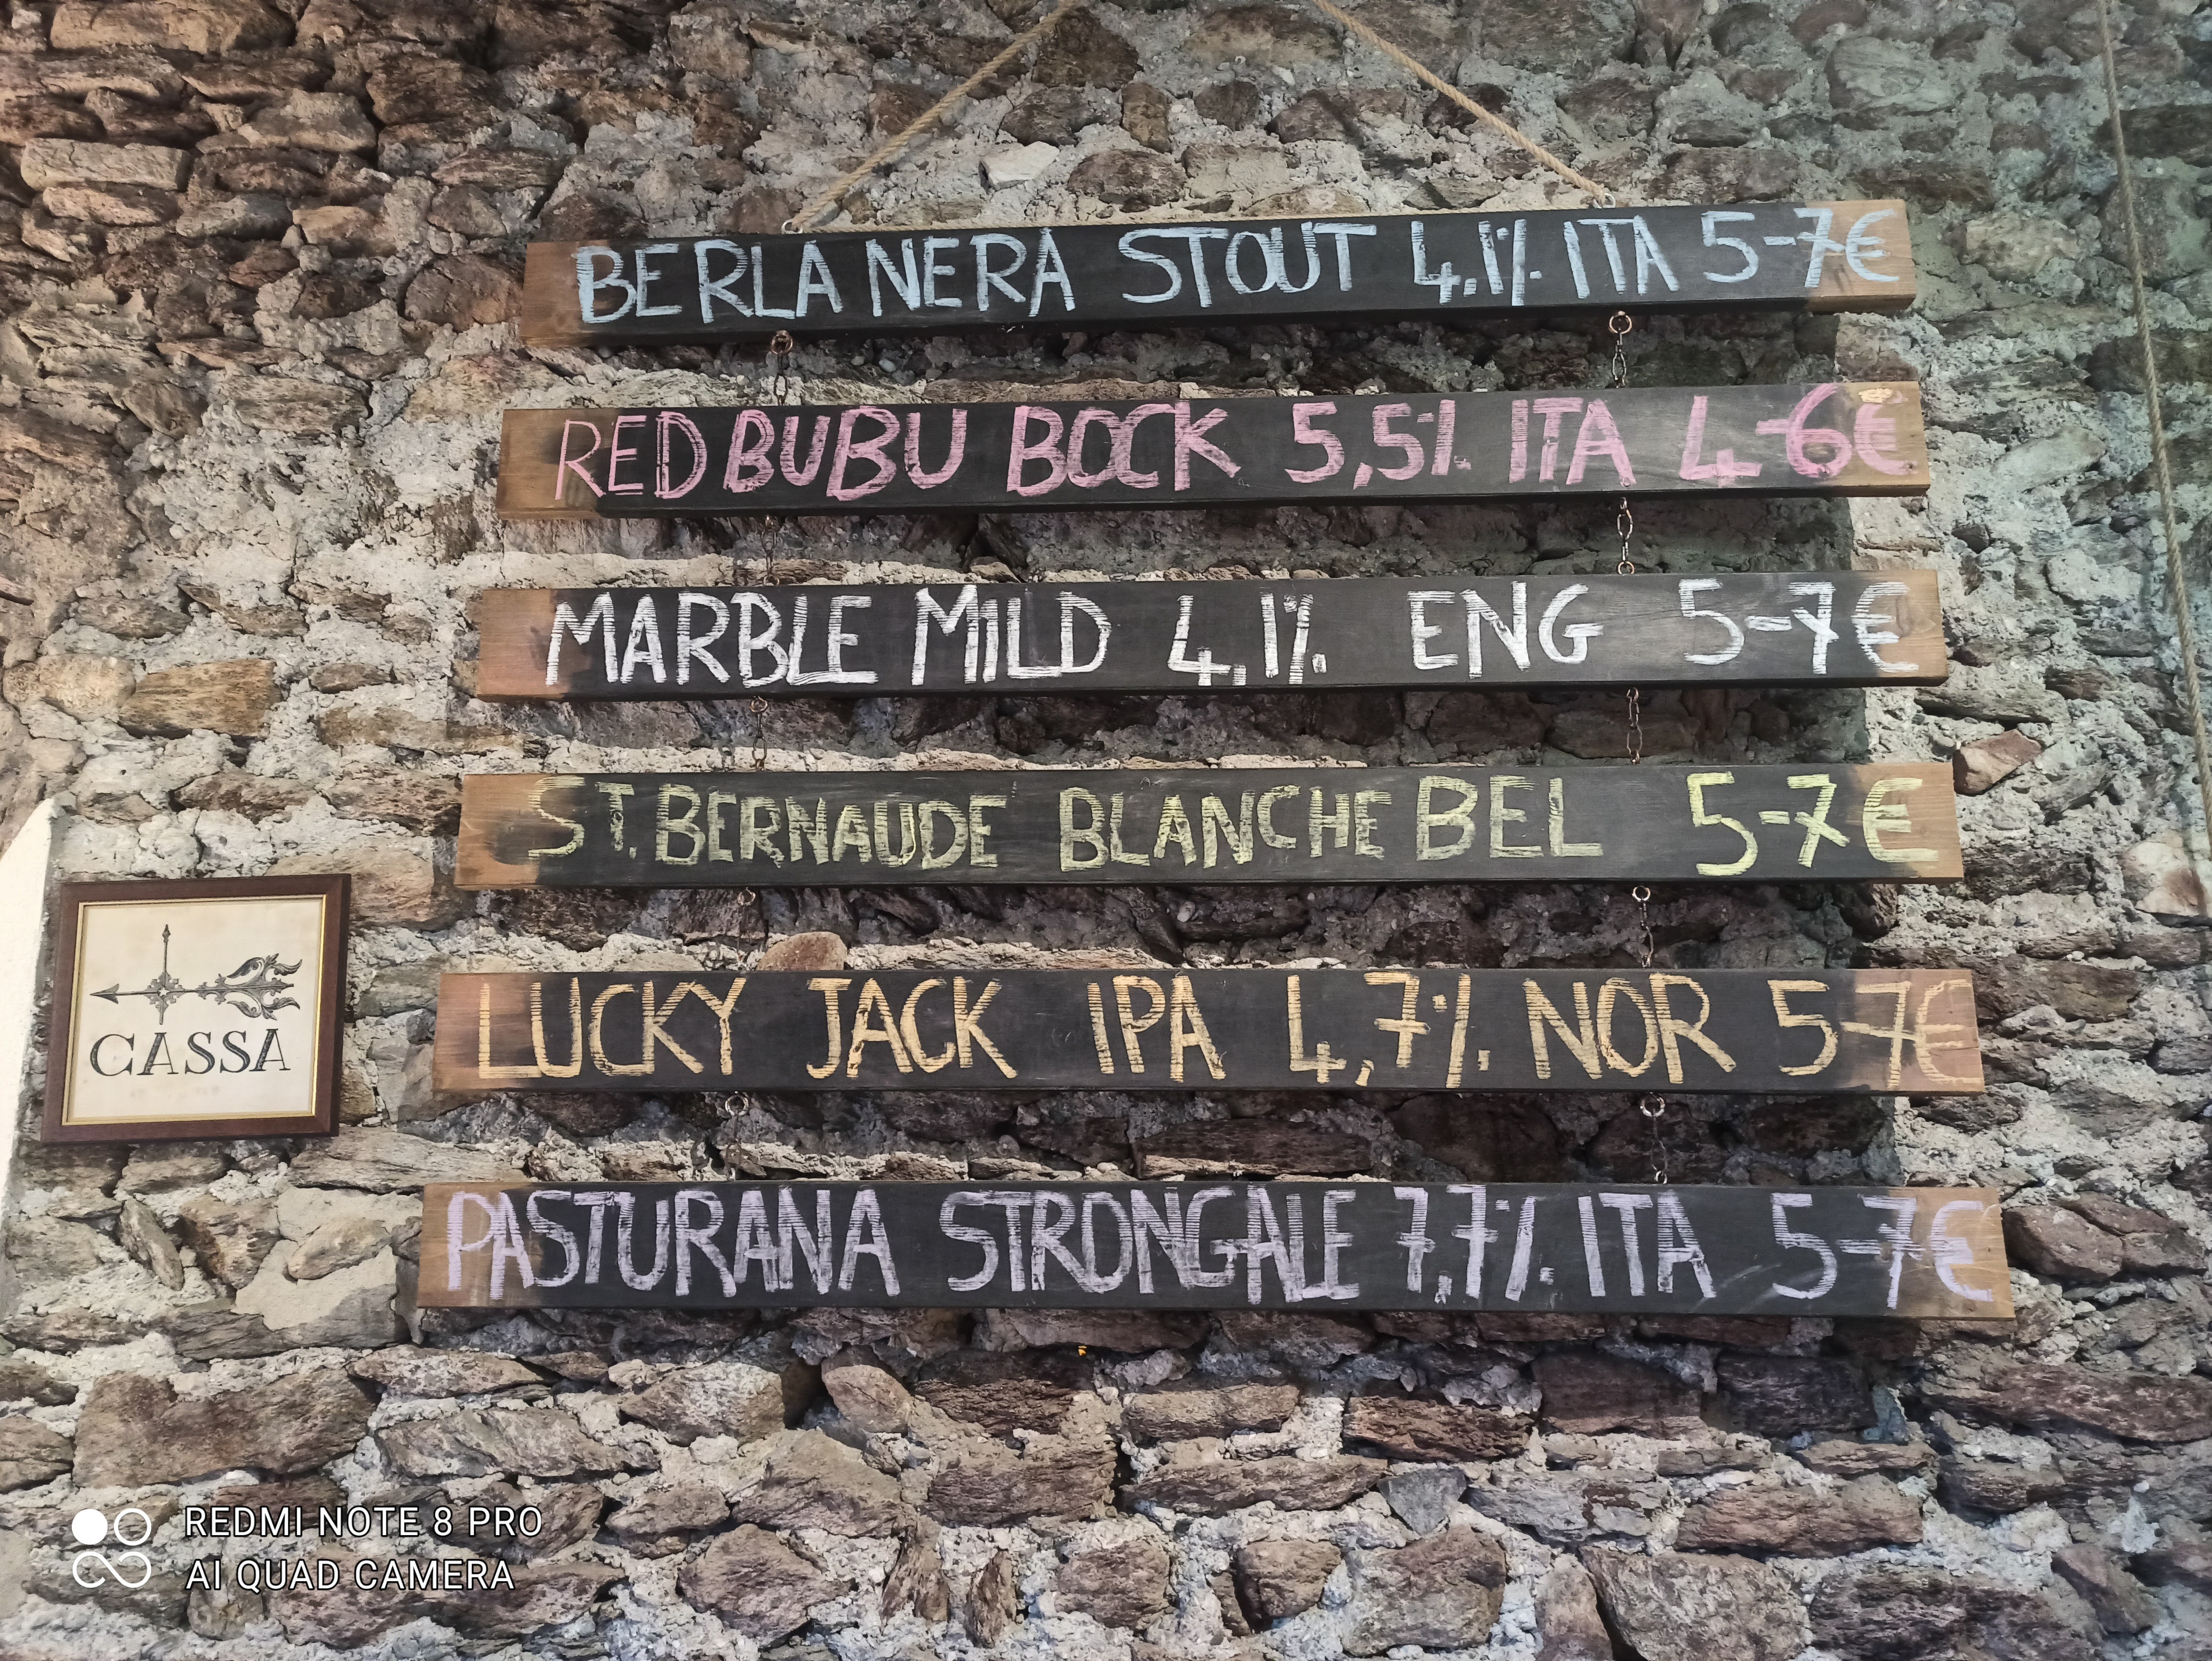 BERLA NERA STOUT 4,1% ITA 5-7€
RED BUBU BOCK 5,5% ITA 4-6€
MARBLE MILD 4,1% ENG 5-7€
ST. BERNAUDE BLANCHE BEL 5-7€
LUCKY JACK IPA 4,7% NOR 5-7€
PASTURANA STRONGALE 7,7% ITA 5-7€
CASSA
REDMI NOTE 8 PRO
AI QUAD CAMERA